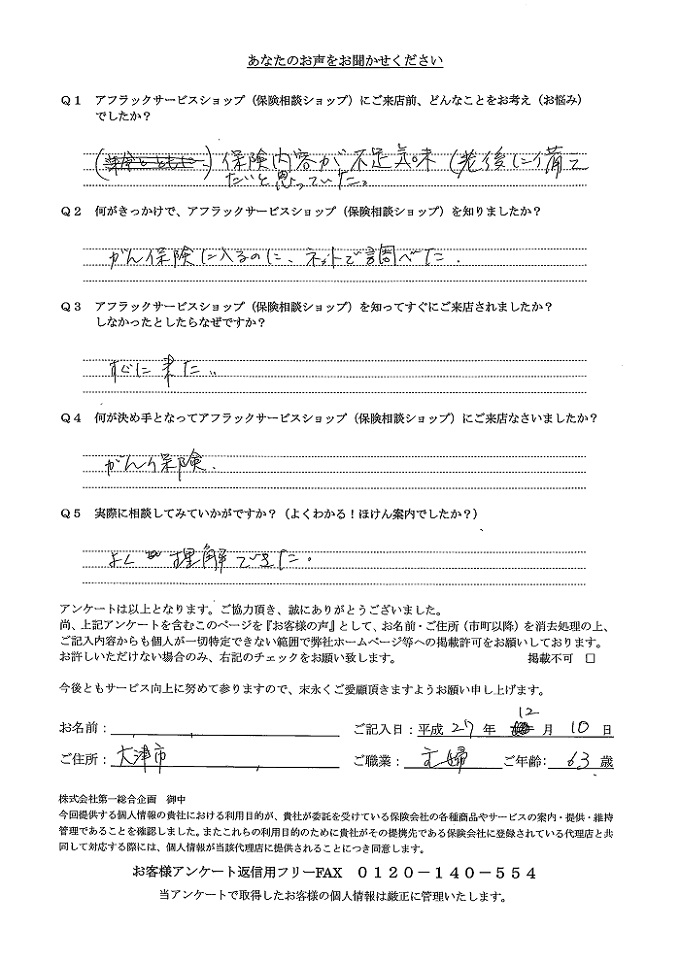 あなたのお声をお聞かせください
Q1 アフラックサービスショップ(保険相談ショップ)にご来店前、どんなことをお考え(お悩み)
でしたか?
( )保険内容が不足気味(老後に備て
たいと思っていた。
Q2 何がきっかけで、アフラックサービスショップ(保険相談ショップ)を知りましたか?
がん保険に入るのに、ネットで調べた.
Q3 アフラックサービスショップ(保険相談ショップ)を知ってすぐにご来店されましたか?
しなかったとしたらなぜですか?
すぐに来た。
Q4 何が決め手となってアフラックサービスショップ(保険相談ショップ)にご来店なさいましたか?
がん保険.
Q5 実際に相談してみていかがですか?(よくわかる!ほけん案内でしたか?)
よく 理解できた.
アンケートは以上となります。ご協力頂き、誠にありがとうございました。
尚、上記アンケートを含むこのページを『お客様の声』として、お名前・ご住所(市町以降)を消去処理の上、
ご記入内容からも個人が一切特定できない範囲で弊社ホームページ等への掲載許可をお願いしております。
お許しいただけない場合のみ、右記のチェックをお願い致します。 掲載不可 □
今後ともサービス向上に努めて参りますので、末永くご愛顧頂きますようお願い申し上げます。
お名前: ご記入日:平成 27 年 12 月 10 日
ご住所: 大津市 ご職業: 主婦 ご年齢: 63 歳
株式会社第一総合企画 御中
今回提供する個人情報の貴社における利用目的が、貴社が委託を受けている保険会社の各種商品やサービスの案内・提供・維持
管理であることを確認しました。またこれらの利用目的のために貴社がその提携先である保険会社に登録されている代理店と共
同して対応する際には、個人情報が当該代理店に提供されることにつき同意します。
お客様アンケート返信用フリーFAX 0120-140-554
当アンケートで取得したお客様の個人情報は厳正に管理いたします。